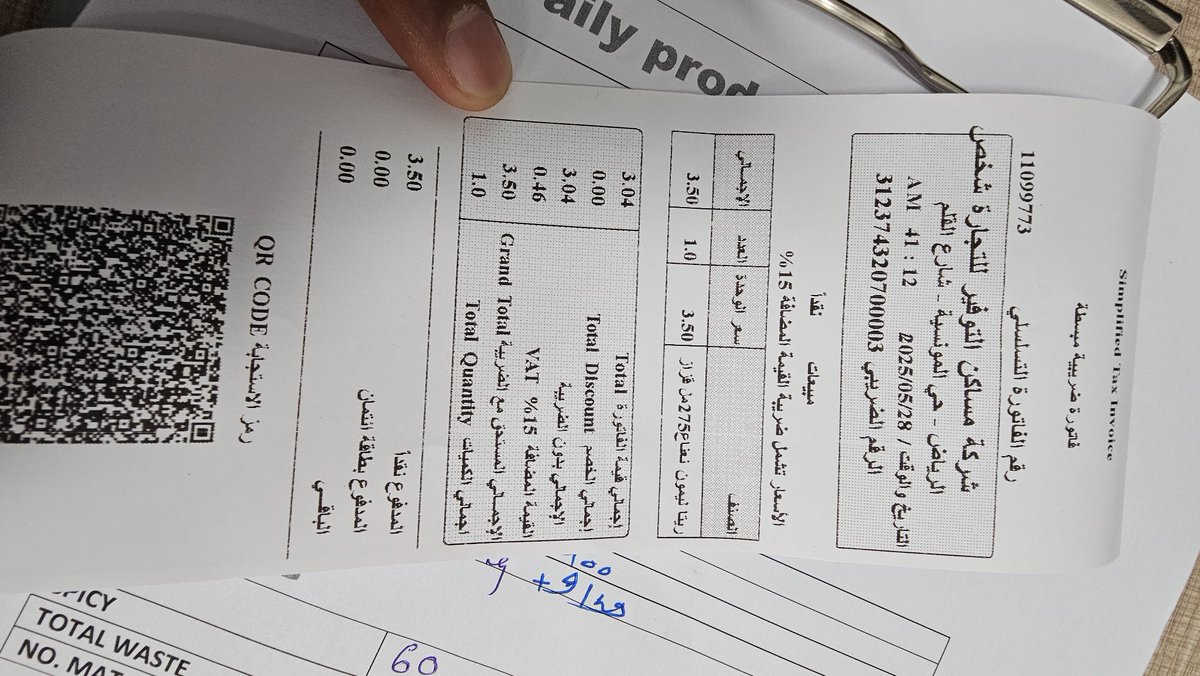 Simplified Tax Invoice
فاتورة ضريبية مبسطة
رقم الفاتورة التسلسلي 11099773
شركة مساكن التوفير للتجارة شخص
الرياض - حي المونسية - شارع القلم
التاريخ والوقت / 2025/05/28 12 : 41 AM
الرقم الضريبي 312374320700003
مبيعات نقداً
الأسعار تشمل ضريبة القيمة المضافة 15%
الصنف سعر الوحدة العدد الاجمالي
ريتا ليمون نعناع275مل قزاز 3.50 1.0 3.50
إجمالي قيمة الفاتورة Total 3.04
إجمالي الخصم Total Discount 0.00
الإجمالي بدون الضريبة 3.04
القيمة المضافة 15% VAT 0.46
الإجمالي المستحق مع الضريبة Grand Total 3.50
اجمالي الكميات Total Quantity 1.0
المدفوع نقداً 3.50
المدفوع بطاقة ائتمان 0.00
الباقي 0.00
رمز الاستجابة QR CODE
aily prod
100
PICY
TOTAL WASTE 60
NO. MAT